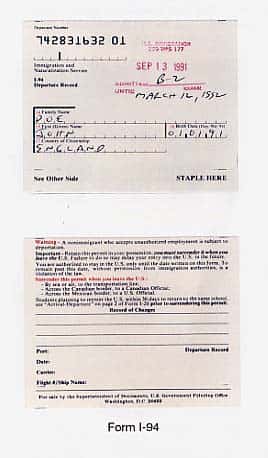 Departure Number
742831632 01
U.S. IMMIGRATION
Immigration and
Naturalization Service
SEP 13 1991
I-94
Departure Record
ADMITTED B-2
UNTIL MARCH 12, 1992
Family Name
DOE
First (Given) Name
Birth Date (Day Mo Yr)
JOHN
01 01 91
Country of Citizenship
ENGLAND
See Other Side
STAPLE HERE
Warning - A nonimmigrant who accepts unauthorized employment is subject to
deportation.
Important - Retain this permit in your possession; you must surrender it when you
leave the U.S. Failure to do so may delay your entry into the U.S. in the future.
You are authorized to stay in the U.S. only until the date written on this form. To
remain past this date, without permission from immigration authorities, is a
violation of the law.
Surrender this permit when you leave the U.S.:
- By sea or air, to the transportation line;
- Across the Canadian border, to a Canadian Official;
- Across the Mexican border, to a U.S. Official.
Students planning to reenter the U.S. within 30 days to return to the same school,
see "Arrival-Departure" on page 2 of Form I-20 prior to surrendering this permit.
Record of Changes
Port:
Departure Record
Date:
Carrier:
Flight #/Ship Name:
For sale by the Superintendent of Documents, U.S. Government Printing Office
Washington, D.C. 20402
Form I-94